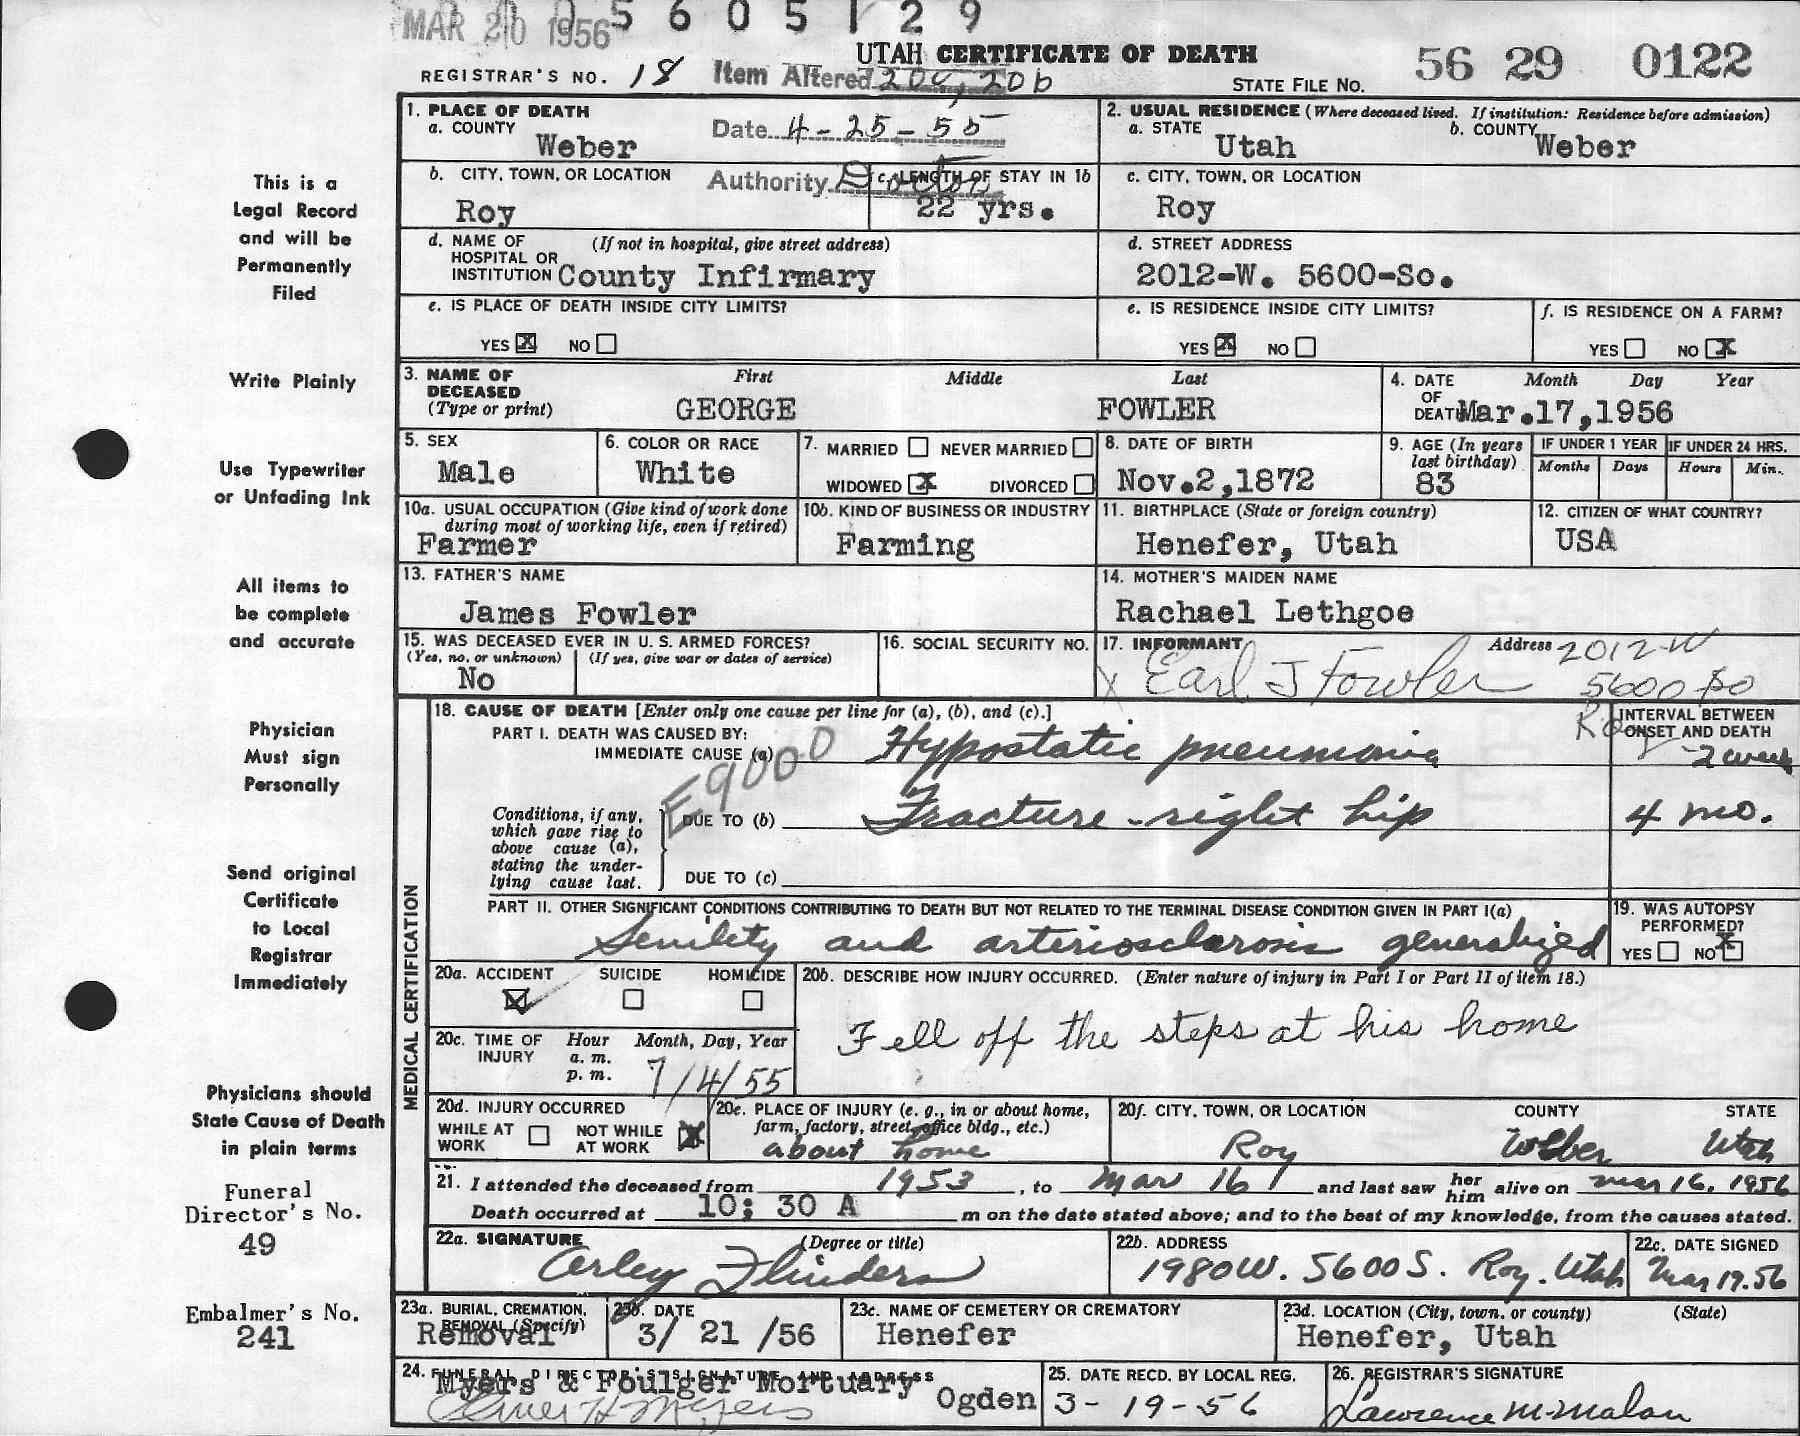 MAR 20 1956 5 6 0 5 1 2 9
UTAH CERTIFICATE OF DEATH
REGISTRAR'S NO. 18 Item Altered 20c, 20b
STATE FILE NO. 56 29 0122
1. PLACE OF DEATH
a. COUNTY
Weber
Date 4-25-55
2. USUAL RESIDENCE (Where deceased lived. If institution: Residence before admission)
a. STATE
Utah
b. COUNTY
Weber
b. CITY, TOWN, OR LOCATION
Roy
Authority Doctor
c. LENGTH OF STAY IN 1b
22 yrs.
c. CITY, TOWN, OR LOCATION
Roy
d. NAME OF HOSPITAL OR INSTITUTION (If not in hospital, give street address)
County Infirmary
d. STREET ADDRESS
2012-W. 5600-So.
e. IS PLACE OF DEATH INSIDE CITY LIMITS?
YES X NO
e. IS RESIDENCE INSIDE CITY LIMITS?
YES X NO
f. IS RESIDENCE ON A FARM?
YES NO X
3. NAME OF DECEASED (Type or print)
First Middle Last
GEORGE FOWLER
4. DATE OF DEATH Month Day Year
Mar.17,1956
5. SEX
Male
6. COLOR OR RACE
White
7. MARRIED NEVER MARRIED
WIDOWED X DIVORCED
8. DATE OF BIRTH
Nov.2,1872
9. AGE (In years last birthday)
83
IF UNDER 1 YEAR
Months Days
IF UNDER 24 HRS.
Hours Min.
10a. USUAL OCCUPATION (Give kind of work done during most of working life, even if retired)
Farmer
10b. KIND OF BUSINESS OR INDUSTRY
Farming
11. BIRTHPLACE (State or foreign country)
Henefer, Utah
12. CITIZEN OF WHAT COUNTRY?
USA
13. FATHER'S NAME
James Fowler
14. MOTHER'S MAIDEN NAME
Rachael Lethgoe
15. WAS DECEASED EVER IN U. S. ARMED FORCES?
(Yes, no, or unknown) (If yes, give war or dates of service)
No
16. SOCIAL SECURITY NO.
17. INFORMANT Address
X Earl J Fowler 2012-W
5600 So
Roy
18. CAUSE OF DEATH [Enter only one cause per line for (a), (b), and (c).]
PART I. DEATH WAS CAUSED BY:
IMMEDIATE CAUSE (a) Hypostatic pneumonia
INTERVAL BETWEEN ONSET AND DEATH
2 week
E9000
Conditions, if any, which gave rise to above cause (a), stating the underlying cause last.
DUE TO (b) Fracture - right hip 4 mo.
DUE TO (c)
PART II. OTHER SIGNIFICANT CONDITIONS CONTRIBUTING TO DEATH BUT NOT RELATED TO THE TERMINAL DISEASE CONDITION GIVEN IN PART I(a)
Senility and arteriosclerosis generalized
19. WAS AUTOPSY PERFORMED?
YES NO X
20a. ACCIDENT SUICIDE HOMICIDE
X
20b. DESCRIBE HOW INJURY OCCURRED. (Enter nature of injury in Part I or Part II of item 18.)
Fell off the steps at his home
20c. TIME OF INJURY Hour Month, Day, Year
a. m.
p. m.
7/4/55
20d. INJURY OCCURRED
WHILE AT WORK NOT WHILE AT WORK X
20e. PLACE OF INJURY (e. g., in or about home, farm, factory, street, office bldg., etc.)
about home
20f. CITY, TOWN, OR LOCATION COUNTY STATE
Roy Weber Utah
21. I attended the deceased from 1953, to Mar 16 and last saw her him alive on Mar 16, 1956
Death occurred at 10; 30 A m on the date stated above; and to the best of my knowledge, from the causes stated.
22a. SIGNATURE (Degree or title)
Arley Flinders
22b. ADDRESS
1980 W. 5600 S. Roy. Utah
22c. DATE SIGNED
Mar 19. 56
23a. BURIAL, CREMATION, REMOVAL (Specify)
Removal
23b. DATE
3/ 21 /56
23c. NAME OF CEMETERY OR CREMATORY
Henefer
23d. LOCATION (City, town, or county) (State)
Henefer, Utah
24. FUNERAL DIRECTOR'S SIGNATURE AND ADDRESS
Myers & Foulger Mortuary Ogden
Elmer H Myers
25. DATE RECD. BY LOCAL REG.
3-19-56
26. REGISTRAR'S SIGNATURE
Lawrence M. Malan
MEDICAL CERTIFICATION
This is a
Legal Record
and will be
Permanently
Filed
Write Plainly
Use Typewriter
or Unfading Ink
All items to
be complete
and accurate
Physician
Must sign
Personally
Send original
Certificate
to Local
Registrar
Immediately
Physicians should
State Cause of Death
in plain terms
Funeral
Director's No.
49
Embalmer's No.
241